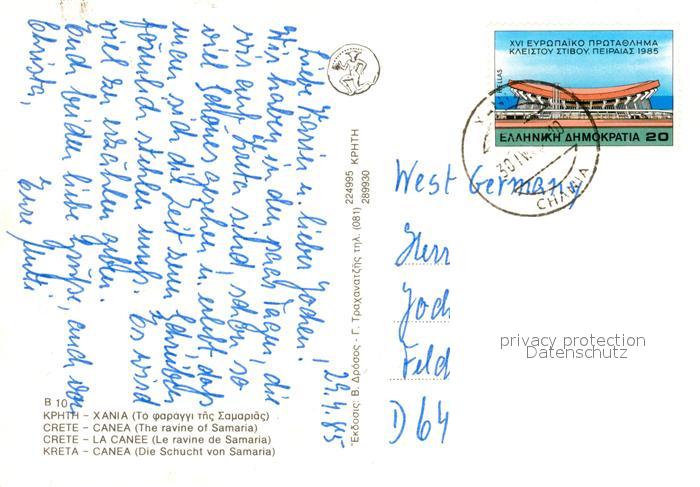 29.4.85
Liebe Karin u. lieber Jochen!
Wir haben in den paar Tagen, die
wir auf Kreta sind, schon so
viel Schönes gesehen u. erlebt, daß
man sich die Zeit zum Schreiben
förmlich stehlen muß. Es wird
viel zu erzählen geben.
Euch beiden liebe Grüße, auch von
Christa,
Eure Mutti
B 10
ΚΡΗΤΗ – ΧΑΝΙΑ (Το φαραγγι τῆς Σαμαριᾶς)
CRETE – CANEA (The ravine of Samaria)
CRETE – LA CANEE (Le ravine de Samaria)
KRETA – CANEA (Die Schucht von Samaria)
Ἐκδοσις: Β. Δρόσος - Γ. Τραχανατζῆς τηλ. (081) 224995 ΚΡΗΤΗ
289930
XVI ΕΥΡΩΠΑΪΚΟ ΠΡΩΤΑΘΛΗΜΑ
ΚΛΕΙΣΤΟΥ ΣΤΙΒΟΥ. ΠΕΙΡΑΙΑΣ 1985
HELLAS
ΕΛΛΗΝΙΚΗ ΔΗΜΟΚΡΑΤΙΑ 20
CHANIA
West Germany
Herr
Joch
Feld
D 64
privacy protection
Datenschutz